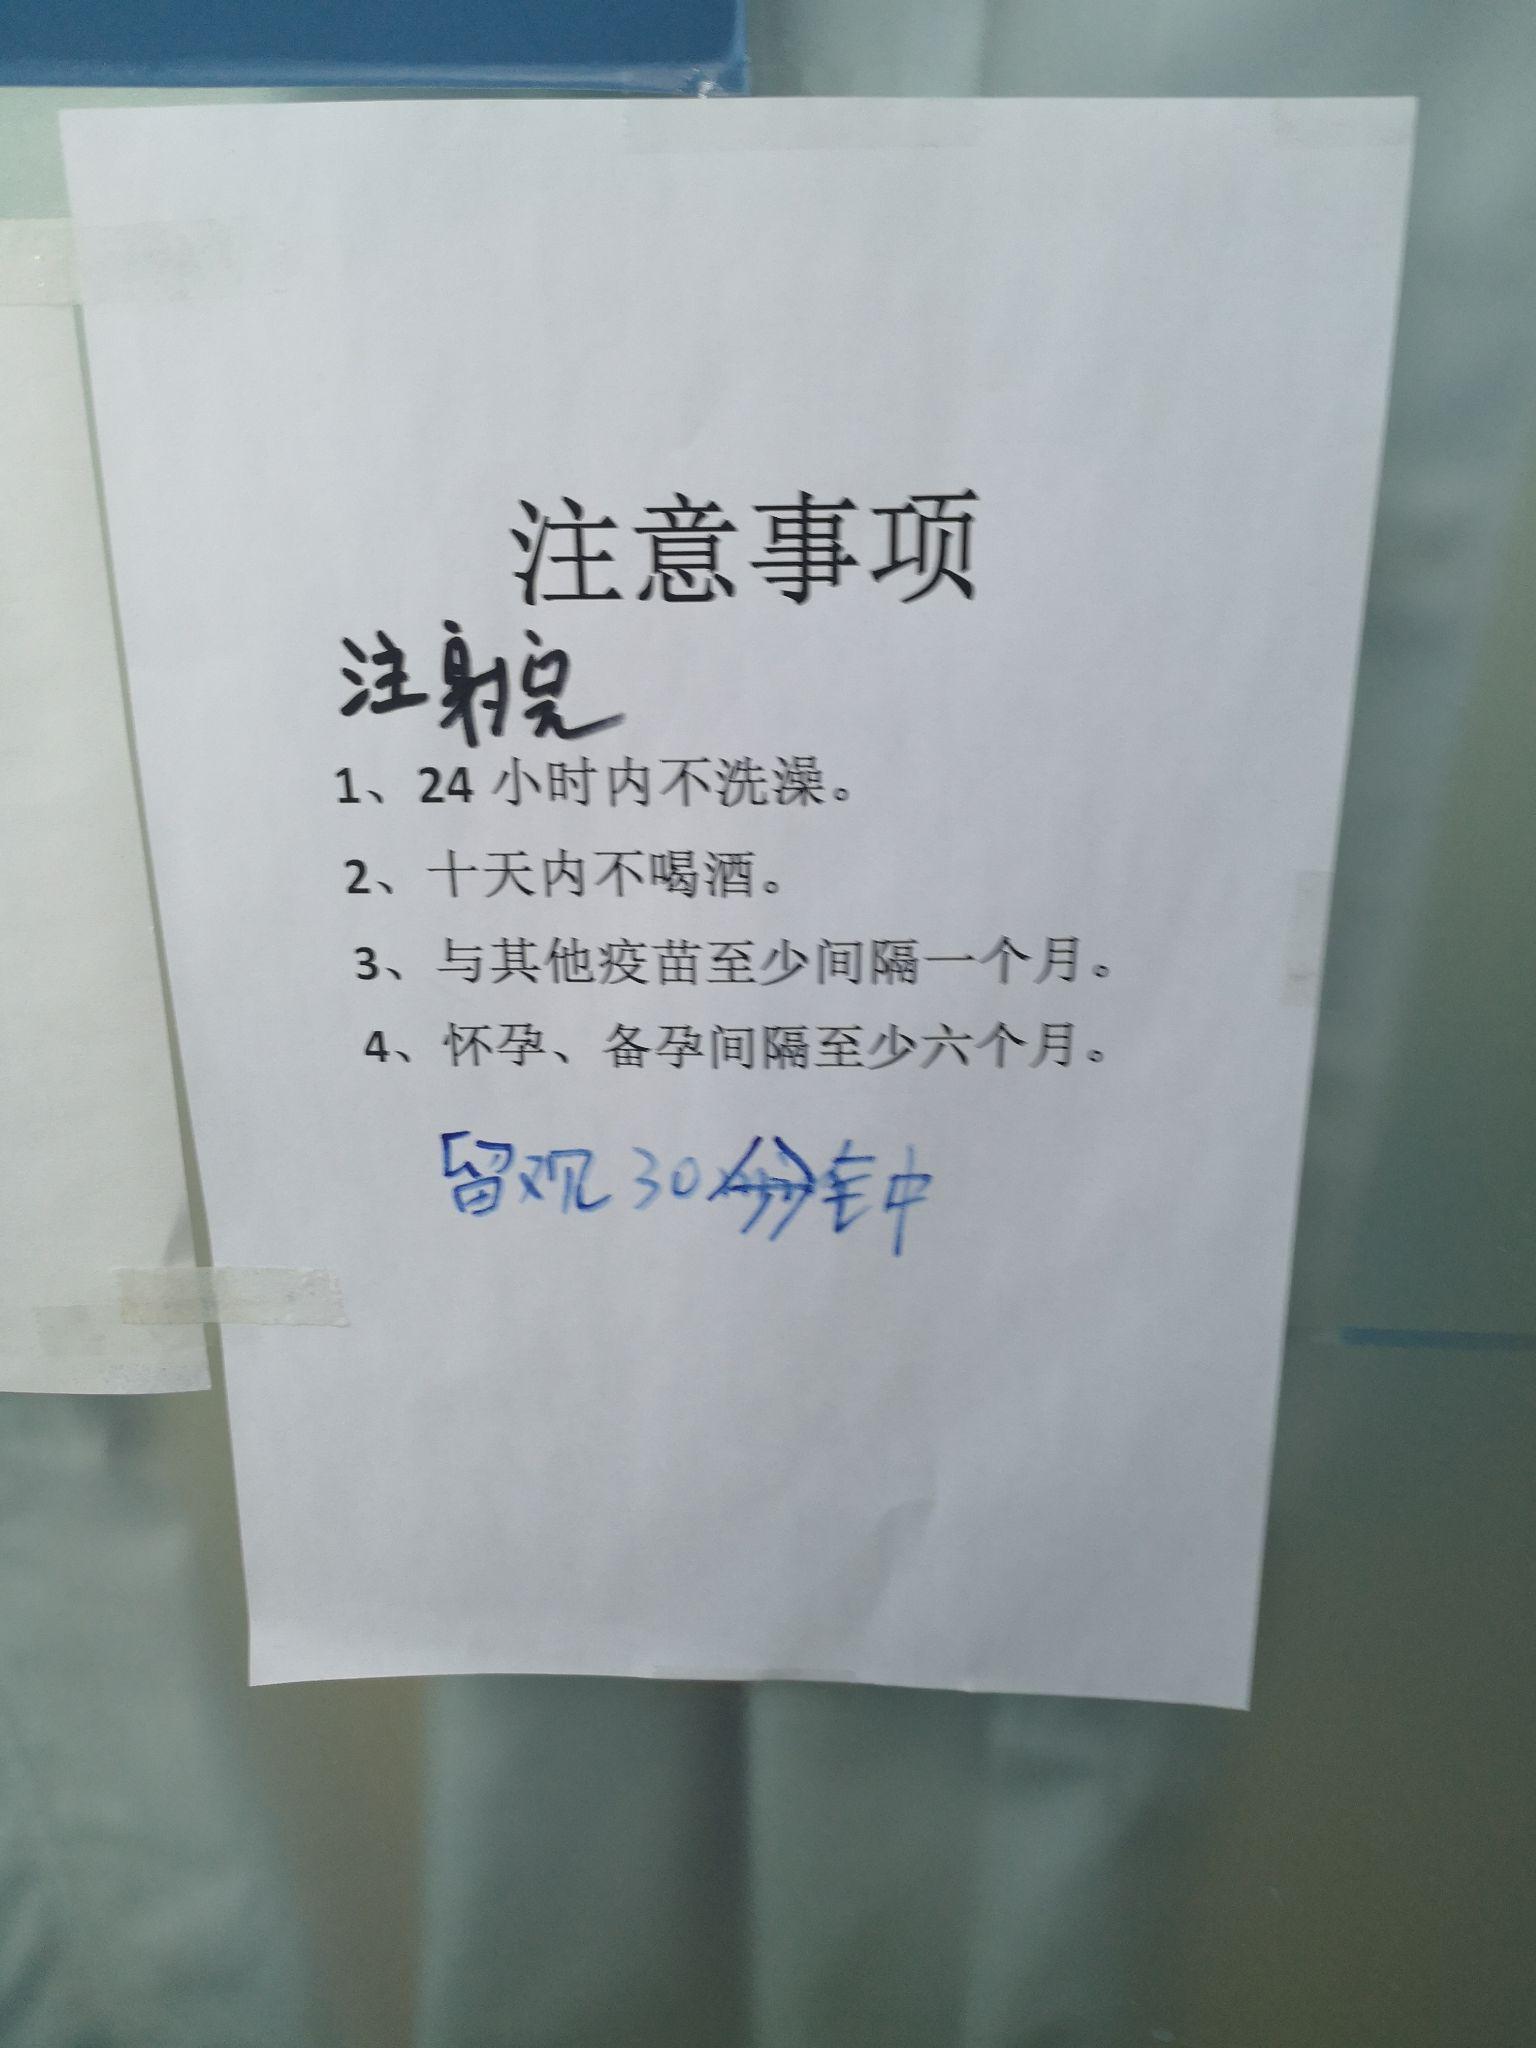 注意事项
注射完
1、24 小时内不洗澡。
2、十天内不喝酒。
3、与其他疫苗至少间隔一个月。
4、怀孕、备孕间隔至少六个月。
留观30分钟